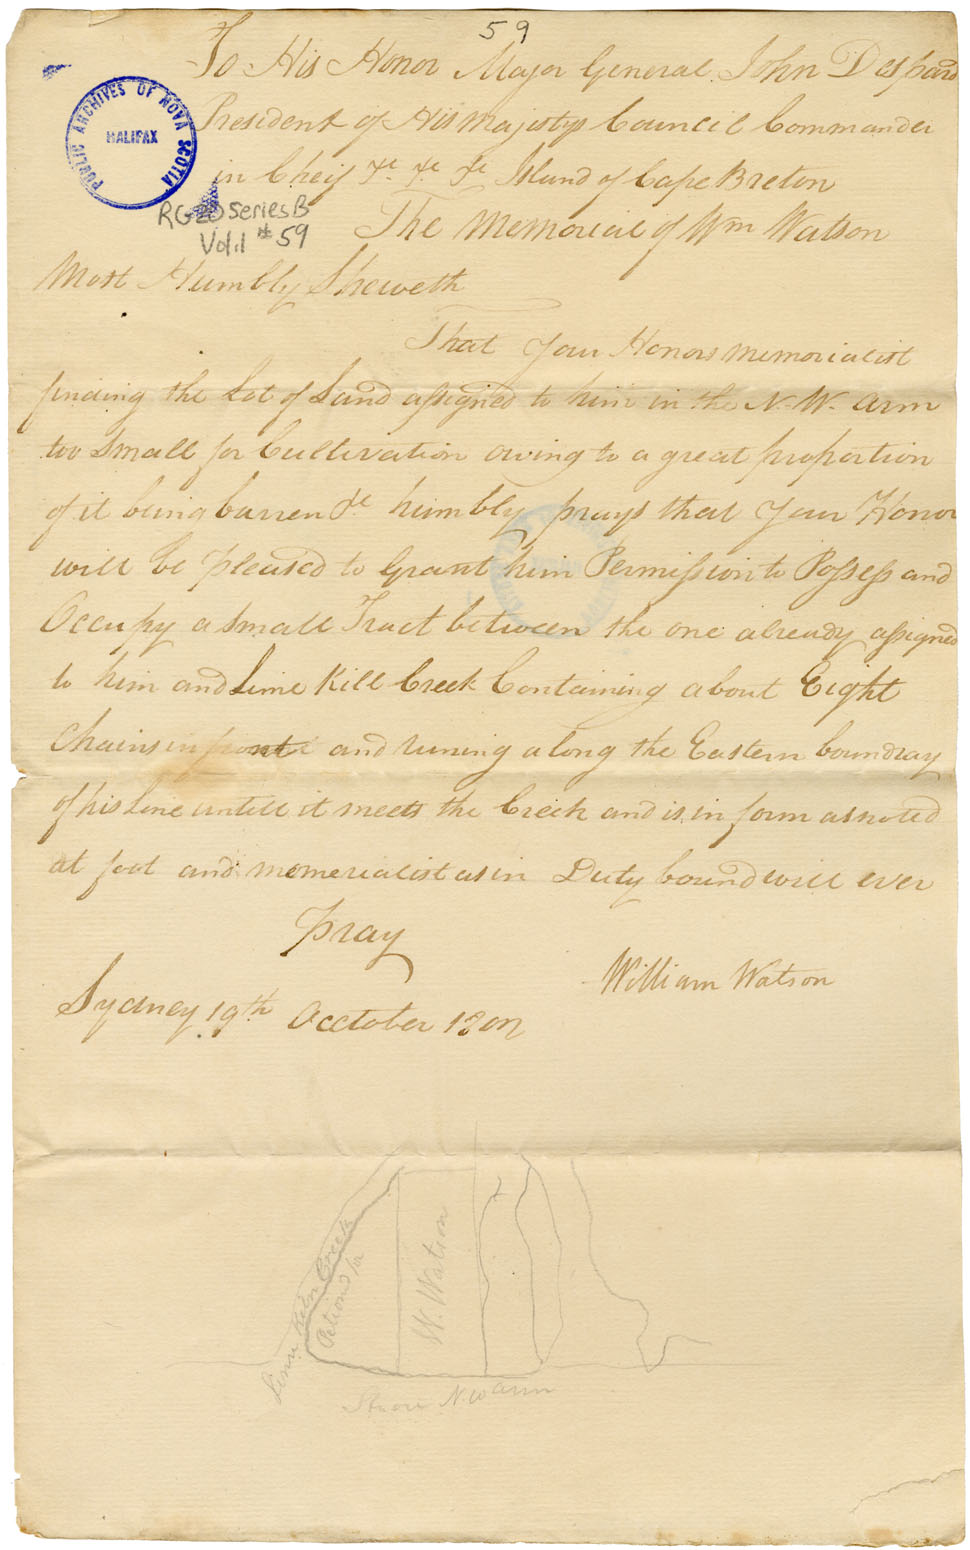 59
To His Honor Major General John Despard
President of His Majestys Council Commander
in Cheif &c &c &c Island of Cape Breton
PUBLIC ARCHIVES OF NOVA SCOTIA
HALIFAX
RG 20 Series B
Vol. 1 # 59
The Memorial of Wm Watson
Most Humbly Sheweth
That Your Honors memorialist
finding the Lot of Land assigned to him in the N. W. arm
too Small for Cultivation owing to a great proportion
of it being barren &c humbly prays that Your Honor
will be pleased to Grant him Permission to Possess and
Occupy a Small Tract between the one already assigned
to him and Lime Kill Creek Containing about Eight
Chains in front and runing along the Eastern boundray
of his Line untill it meets the Creek and is in form as noted
at foot and memerialist as in Duty bound will ever
Pray
William Watson
Sydney 19th Occtober 1802
Lime Kiln Creek
Petiond for
W. Watson
Shore N. W arm